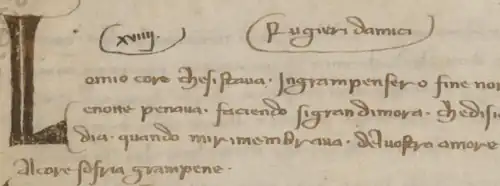 xviiij. Rugieri damici
Lomio core chesistaua · Ingrampenser o fine non
enotte penaua · faciendo sigrandimora · chedisi
dia · quando mirimembraua · deluostro amore
Alcore sofria grampene ·